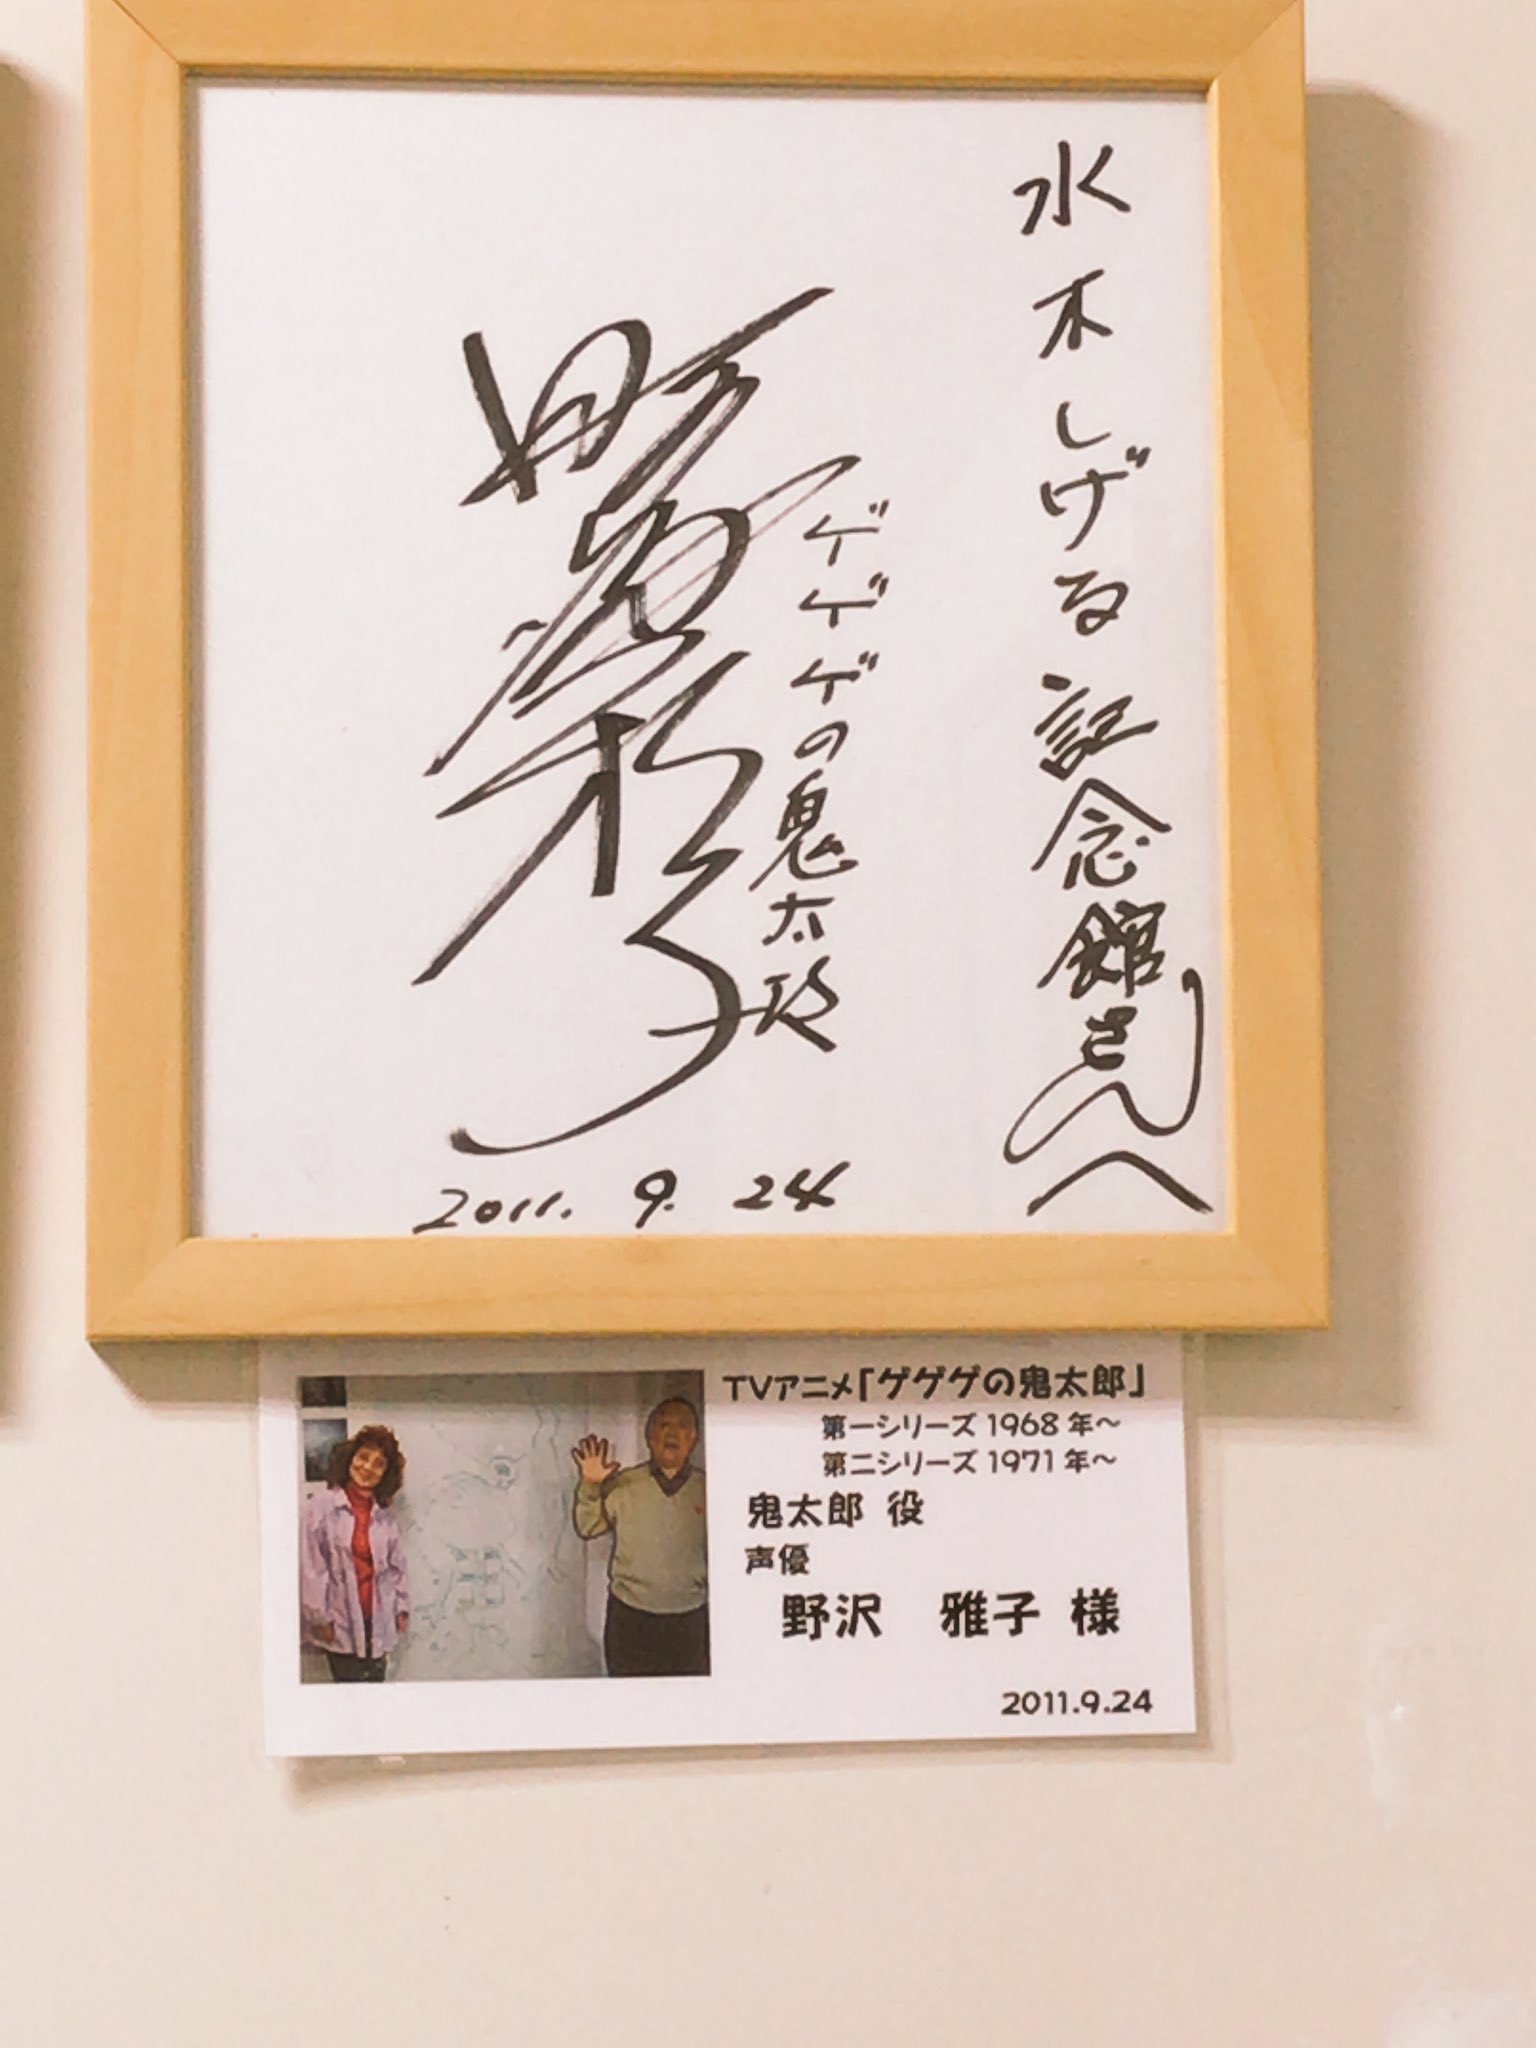 水木しげる記念館さんへ
ゲゲゲの鬼太郎
野沢雅子
2011. 9. 24
TVアニメ「ゲゲゲの鬼太郎」
第一シリーズ 1968 年～
第二シリーズ 1971 年～
鬼太郎 役
声優
野沢 雅子 様
2011.9.24